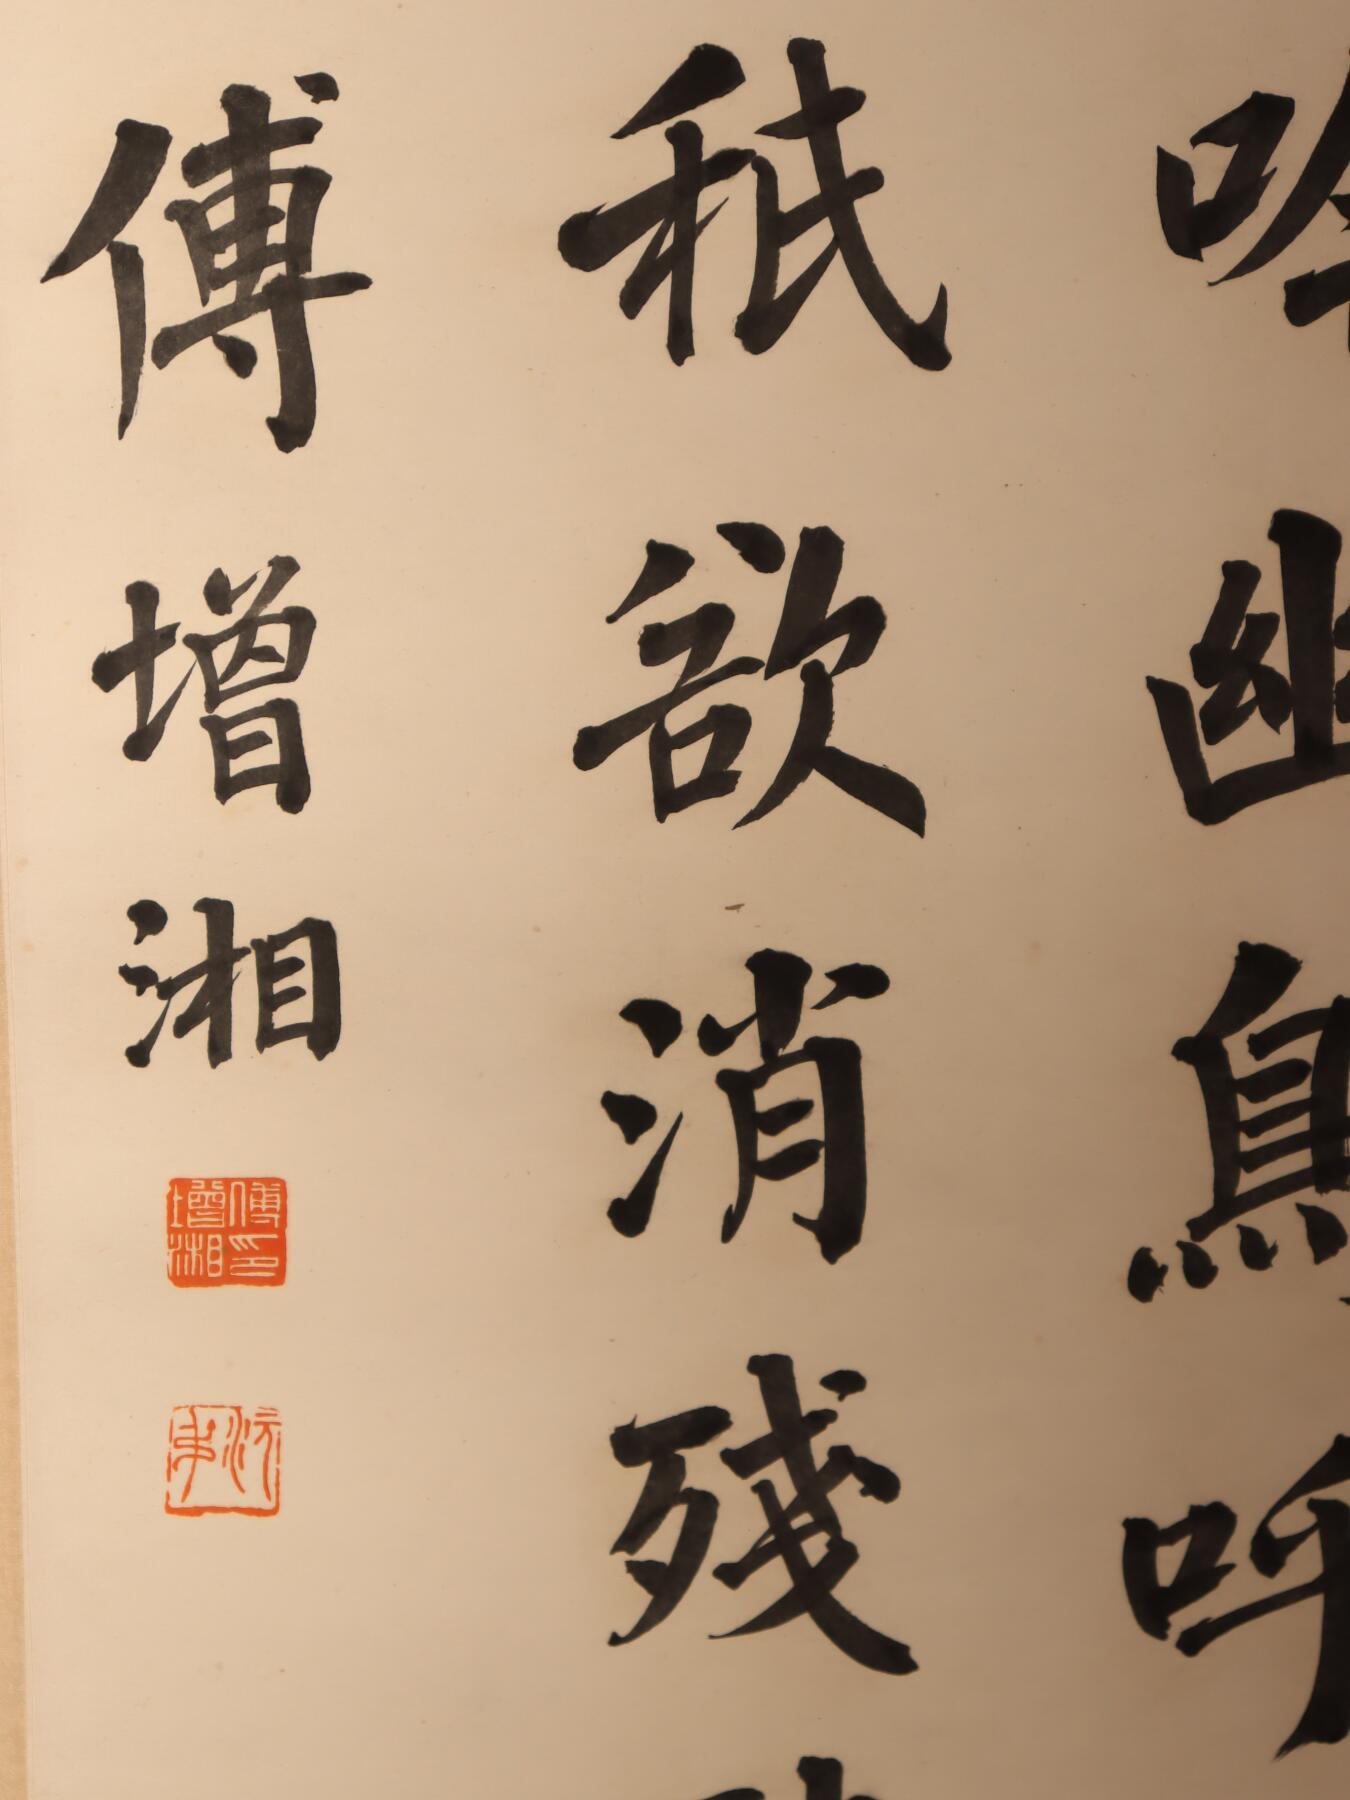 吟幽鳥呼
秖欲消殘
傅增湘
傅增湘印
沅叔